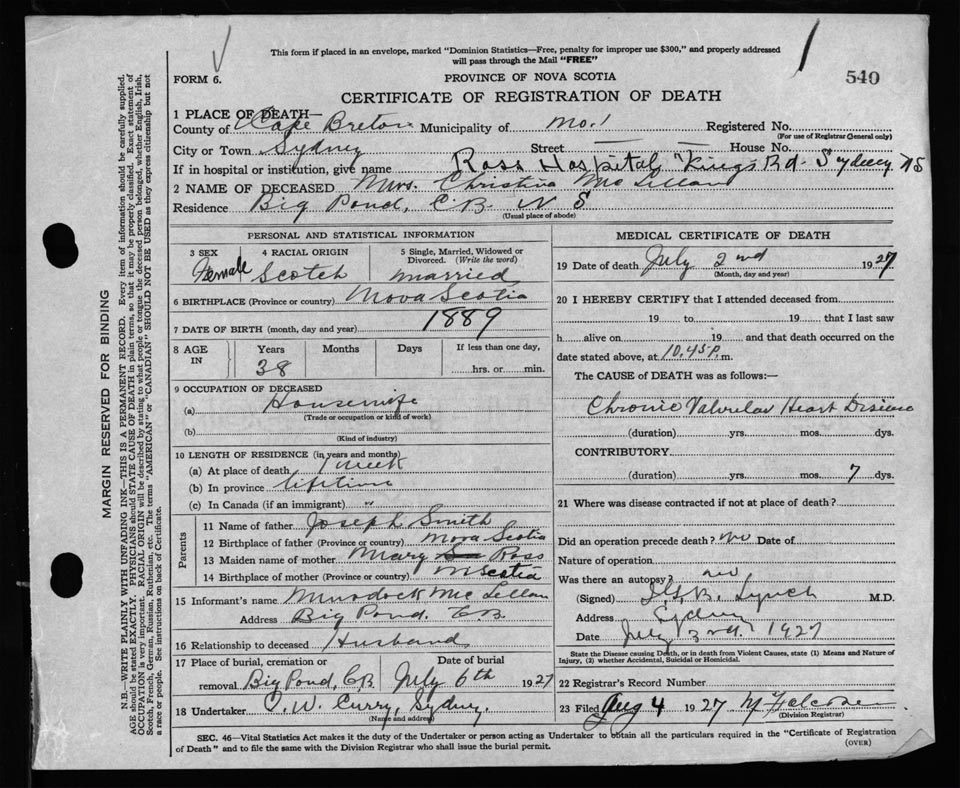 This form if placed in an envelope, marked "Dominion Statistics—Free, penalty for improper use $300," and properly addressed
will pass through the Mail "FREE"
FORM 6.
PROVINCE OF NOVA SCOTIA
540
CERTIFICATE OF REGISTRATION OF DEATH
1 PLACE OF DEATH—
County of Cape Breton Municipality of No. 1 Registered No.
(For use of Registrar General only)
City or Town Sydney Street House No.
If in hospital or institution, give name Ross Hospital Kings Rd- Sydney NS
2 NAME OF DECEASED Mrs. Christina McLellan
Residence Big Pond, C.B. N S
(Usual place of abode)
PERSONAL AND STATISTICAL INFORMATION
3 SEX Female
4 RACIAL ORIGIN Scotch
5 Single, Married, Widowed or Divorced. (Write the word) married
6 BIRTHPLACE (Province or country) Nova Scotia
7 DATE OF BIRTH (month, day and year) 1889
8 AGE IN Years 38 Months Days If less than one day, hrs. or min.
9 OCCUPATION OF DECEASED
(a) Housewife
(Trade or occupation or kind of work)
(b)
(Kind of industry)
10 LENGTH OF RESIDENCE (in years and months)
(a) At place of death 1 week
(b) In province lifetime
(c) In Canada (if an immigrant) "
Parents
11 Name of father Joseph Smith
12 Birthplace of father (Province or country) Nova Scotia
13 Maiden name of mother Mary Ross
14 Birthplace of mother (Province or country) N Scotia
15 Informant's name Murdock McLellan
Address Big Pond. C.B.
16 Relationship to deceased Husband
17 Place of burial, cremation or removal Big Pond, C.B. Date of burial July 6th 1927
18 Undertaker C. W. Curry, Sydney.
(Name and address)
MEDICAL CERTIFICATE OF DEATH
19 Date of death July 2nd 1927
(Month, day and year)
20 I HEREBY CERTIFY that I attended deceased from
19 to 19 that I last saw
h alive on 19 and that death occurred on the
date stated above, at 10.45 p.m.
The CAUSE of DEATH was as follows:—
Chronic Valvular Heart Disease
(duration) yrs. mos. dys.
CONTRIBUTORY
(duration) yrs. mos. 7 dys.
21 Where was disease contracted if not at place of death?
Did an operation precede death? no Date of
Nature of operation
Was there an autopsy? no
(Signed) Lynch M.D.
Address Sydney
Date July 3rd. 1927
State the Disease causing Death, or in death from Violent Causes, state (1) Means and Nature of
Injury, (2) whether Accidental, Suicidal or Homicidal.
22 Registrar's Record Number
23 Filed Aug 4 1927
(Division Registrar)
SEC. 46—Vital Statistics Act makes it the duty of the Undertaker or person acting as Undertaker to obtain all the particulars required in the "Certificate of Registration
of Death" and to file the same with the Division Registrar who shall issue the burial permit.
(OVER)
MARGIN RESERVED FOR BINDING
N.B.—WRITE PLAINLY WITH UNFADING INK—THIS IS A PERMANENT RECORD. Every item of information should be carefully supplied.
AGE should be stated EXACTLY. PHYSICIANS should STATE CAUSE OF DEATH in plain terms, so that it may be properly classified. Exact statement of
OCCUPATION is very important. RACIAL ORIGIN will be described by stating to what people or tongue the deceased person belonged, whether English, Irish,
Scotch, French, German, Russian, Ruthenian, etc. The terms "AMERICAN" or "CANADIAN" SHOULD NOT BE USED as they express citizenship but not
a race or people. See instructions on back of Certificate.